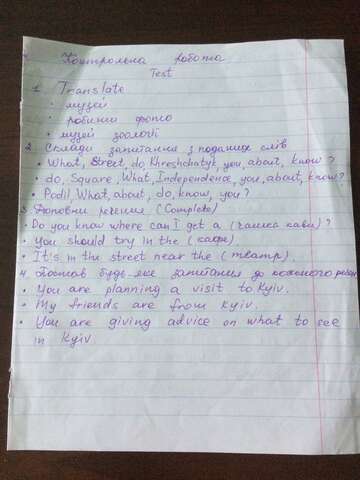 Контрольна робота
Test
1. Translate
• музей
• робити фото
• музей зоології
2. Склади запитання з поданих слів
• What, Street, do, Khreshchatyk, you, about, know?
• do, Square, What, Independence, you, about, know?
• Podil, What, about, do, know, you?
3. Доповни речення (Complete)
• Do you know where can I get a (чашка кави)?
• You should try in the (кафе).
• It's in the street near the (театр).
4. Постав будь-яке запитання до кожного
• You are planning a visit to Kyiv.
• My friends are from Kyiv.
• You are giving advice on what to see
in Kyiv